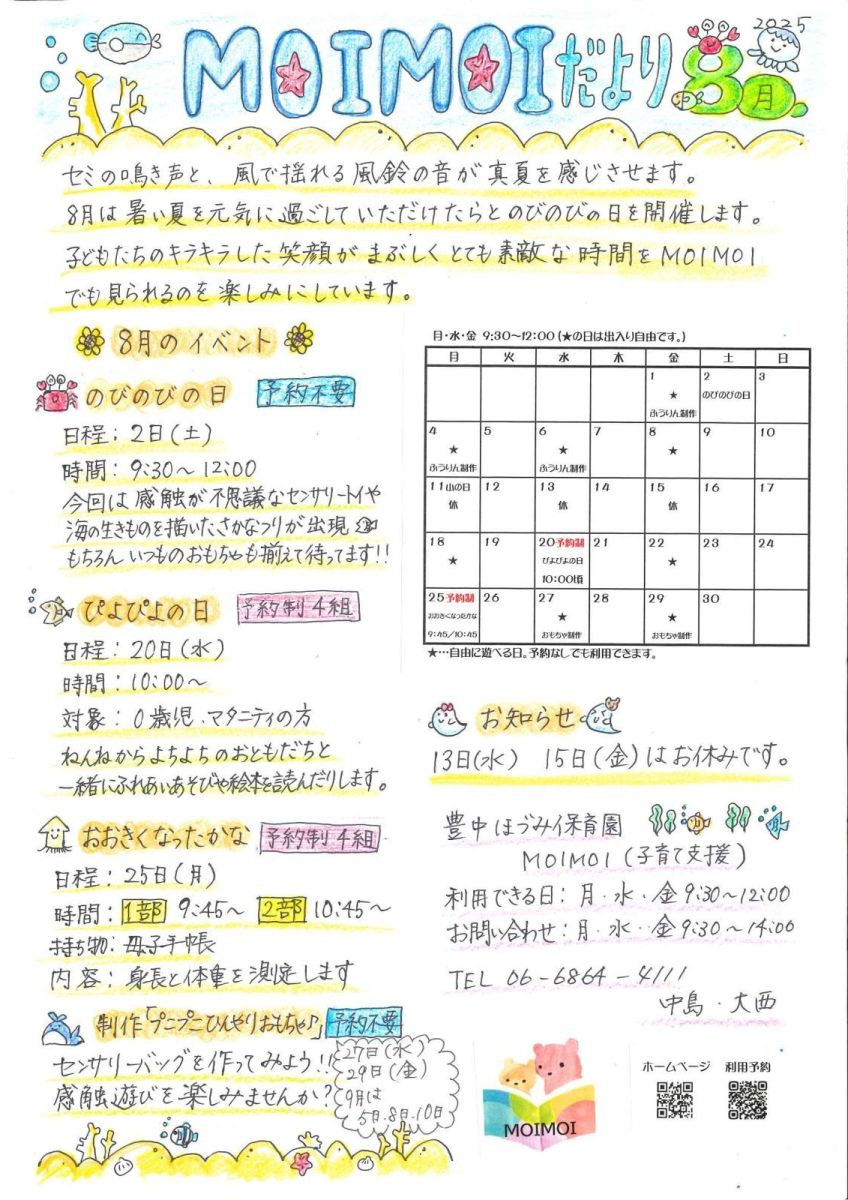 2025
MOIMOIだより 8月
セミの鳴き声と、風で揺れる風鈴の音が真夏を感じさせます。
8月は暑い夏を元気に過ごしていただけたらとのびのびの日を開催します。
子どもたちのキラキラした笑顔がまぶしくとても素敵な時間をMOIMOI
でも見られるのを楽しみにしています。
8月のイベント
のびのびの日 予約不要
日程：2日(土)
時間：9:30〜12:00
今回は感触が不思議なセンサリートイや
海の生きものを描いたさかなつりが出現
もちろんいつものおもちゃも揃えて待ってます!!
ぴよぴよの日 予約制4組
日程：20日(水)
時間：10:00〜
対象：0歳児、マタニティの方
ねんねからよちよちのおともだちと
一緒にふれあいあそびや絵本を読んだりします。
おおきくなったかな 予約制4組
日程：25日(月)
時間：1部 9:45〜 2部 10:45〜
持ち物：母子手帳
内容：身長と体重を測定します
制作「プニプニひんやりおもちゃ♪」 予約不要
センサリーバッグを作ってみよう!!
感触遊びを楽しみませんか?
27日(水)
29日(金)
9月は
5日.8日.10日
月・水・金 9:30〜12:00 (★の日は出入り自由です。)
月 火 水 木 金 土 日
1 2 3
★ のびのびの日
ふうりん制作
4 5 6 7 8 9 10
★ ★ ★
ふうりん制作 ふうりん制作
11山の日 12 13 14 15 16 17
休 休 休
18 19 20予約制 21 22 23 24
★ ぴよぴよの日 ★
10:00頃
25予約制 26 27 28 29 30
おおきくなったかな ★ ★
9:45/10:45 おもちゃ制作 おもちゃ制作
★…自由に遊べる日。予約なしでも利用できます。
お知らせ
13日(水) 15日(金)はお休みです。
豊中ほづみ保育園
MOIMOI(子育て支援)
利用できる日：月・水・金 9:30〜12:00
お問い合わせ：月・水・金 9:30〜14:00
TEL 06-6864-4111
中島・大西
MOIMOI
ホームページ 利用予約